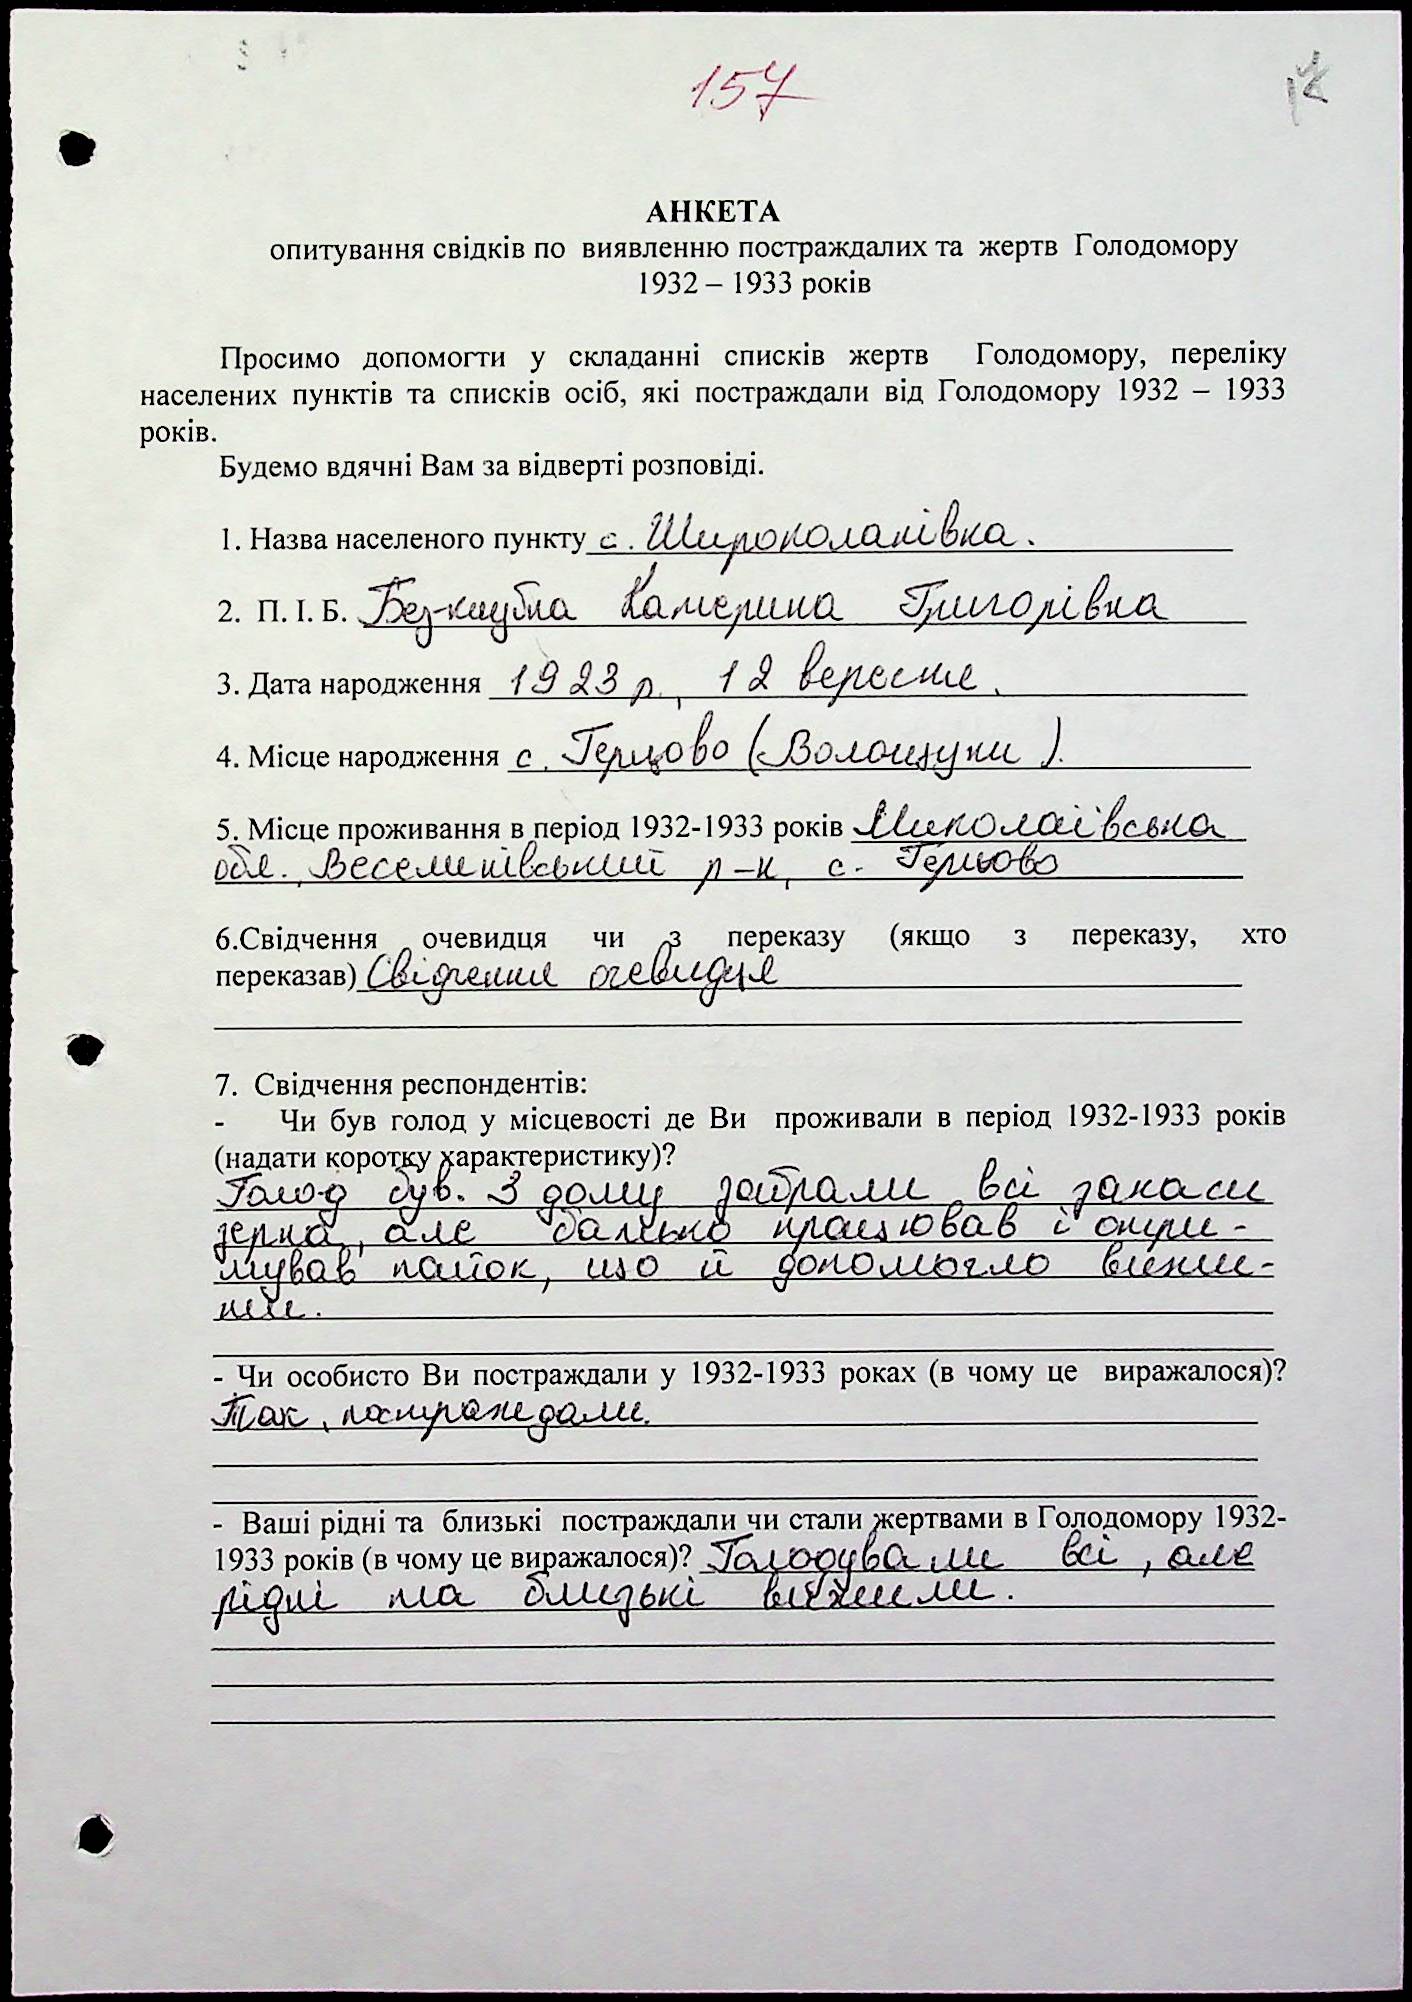 157
АНКЕТА
опитування свідків по виявленню постраждалих та жертв Голодомору
1932 – 1933 років
Просимо допомогти у складанні списків жертв Голодомору, переліку
населених пунктів та списків осіб, які постраждали від Голодомору 1932 – 1933
років.
Будемо вдячні Вам за відверті розповіді.
1. Назва населеного пункту с. Широколанівка.
2. П. І. Б. Катерина Григорівна
3. Дата народження 1923 р., 12 вересня.
4. Місце народження с. (Волощуки).
5. Місце проживання в період 1932-1933 років Миколаївська
обл., Веселинівський р-н, с.
6.Свідчення очевидця чи з переказу (якщо з переказу, хто
переказав) Свідчення очевидця
7. Свідчення респондентів:
- Чи був голод у місцевості де Ви проживали в період 1932-1933 років
(надати коротку характеристику)?
Голод був. З дому забрали всі запаси
зерна, але батько працював і отри-
мував пайок, що й допомогло вижи-
ти.
- Чи особисто Ви постраждали у 1932-1933 роках (в чому це виражалося)?
Так, постраждали.
- Ваші рідні та близькі постраждали чи стали жертвами в Голодомору 1932-
1933 років (в чому це виражалося)? Голодували всі, але
рідні та близькі вижили.